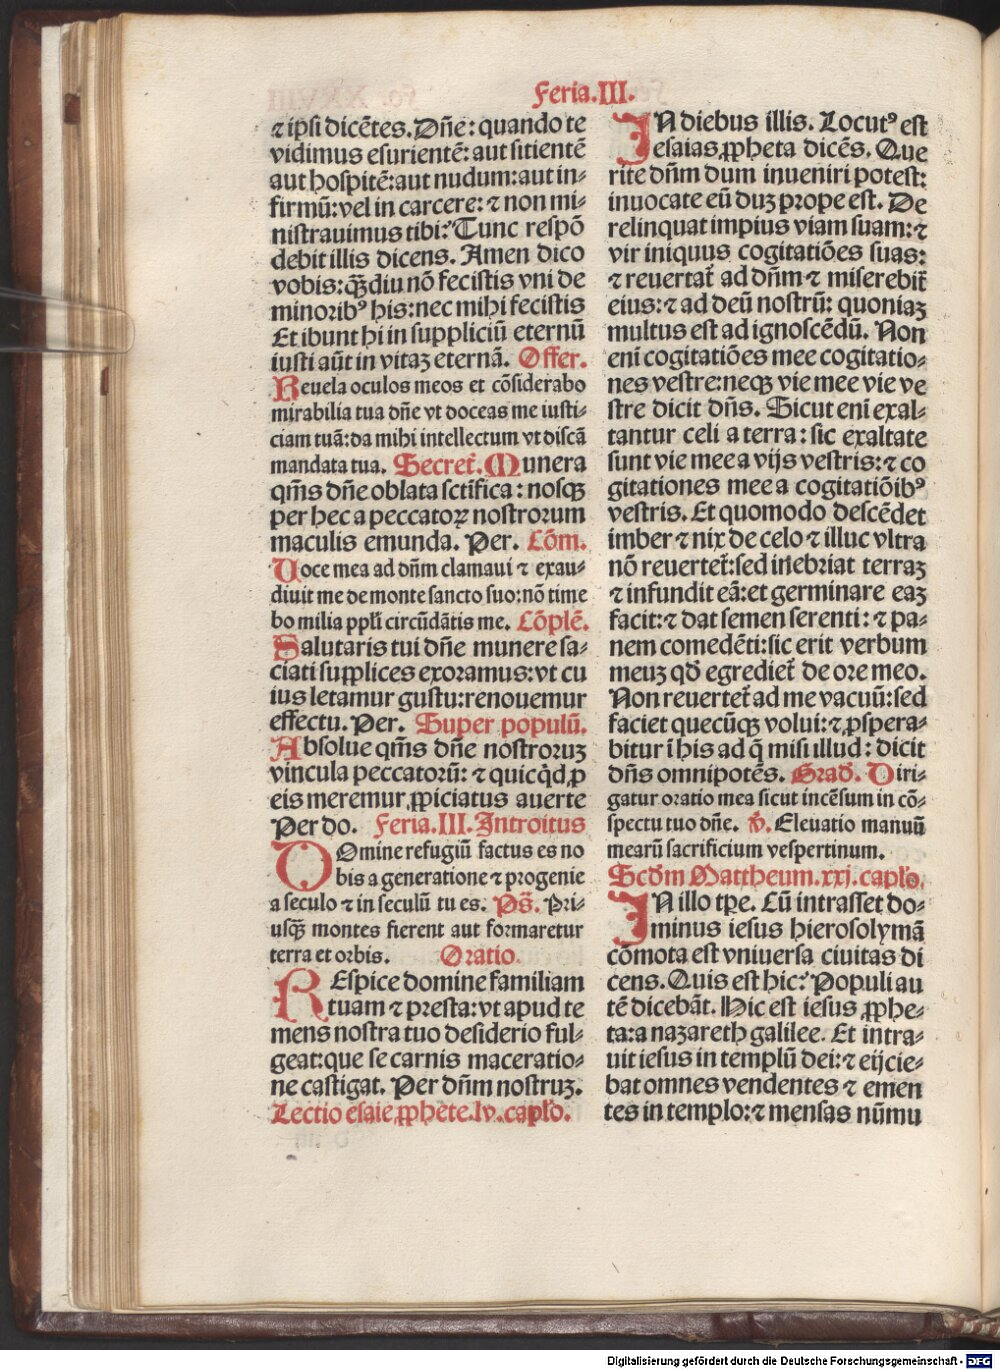 Feria.III.
⁊ ipsi dicẽtes. Dñe: quando te
vidimus esurientẽ: aut sitientẽ
aut hospitẽ: aut nudum: aut in-
firmũ: vel in carcere: ⁊ non mi-
nistrauimus tibi? Tunc respõ
debit illis dicens. Amen dico
vobis: qꝫ̃diu nõ fecistis vni de
minoribꝰ his: nec mihi fecistis
Et ibunt hi in suppliciũ eternũ
iusti aũt in vitaꝫ eternã. Offer.
Reuela oculos meos et cõsiderabo
mirabilia tua dñe vt doceas me iusti-
ciam tuã: da mihi intellectum vt discã
mandata tua. Secret̃. Munera
qm̃s dñe oblata sctifica: nosqꝫ
per hec a peccatoꝝ nostrorum
maculis emunda. Per. Cõm.
Uoce mea ad dñm clamaui ⁊ exau-
diuit me de monte sancto suo: nõ time
bo milia ppl̃i circũdãtis me. Cõplẽ.
Salutaris tui dñe munere sa-
ciati supplices exoramus: vt cu
ius letamur gustu: renouemur
effectu. Per. Super populũ.
Absolue qm̃s dñe nostroruꝫ
vincula peccatorũ: ⁊ quicq̃d ꝓ
eis meremur ꝓpiciatus auerte
Per do. Feria.III. Introitus
DOmine refugiũ factus es no
bis a generatione ⁊ progenie
a seculo ⁊ in seculũ tu es. Ps̃. Pri-
usqꝫ̃ montes fierent aut formaretur
terra et orbis. Oratio.
REspice domine familiam
tuam ⁊ presta: vt apud te
mens nostra tuo desiderio ful-
geat: que se carnis maceratio-
ne castigat. Per dñm nostruꝫ.
Lectio esaie ꝓphete. lv. capl̃o.
IN diebus illis. Locutꝰ est
esaias ꝓpheta dicẽs. Que
rite dñm dum inueniri potest:
inuocate eũ duꝫ prope est. De
relinquat impius viam suam: ⁊
vir iniquus cogitatiões suas:
⁊ reuertat̃ ad dñm ⁊ miserebit̃
eius: ⁊ ad deũ nostrũ: quoniaꝫ
multus est ad ignoscẽdũ. Non
eni cogitatiões mee cogitatio-
nes vestre: neqꝫ vie mee vie ve
stre dicit dñs. Sicut eni exal-
tantur celi a terra: sic exaltate
sunt vie mee a vijs vestris: ⁊ co
gitationes mee a cogitatiõibꝰ
vestris. Et quomodo descẽdet
imber ⁊ nix de celo ⁊ illuc vltra
nõ reuertet̃: sed inebriat terraꝫ
⁊ infundit eã: et germinare eaꝫ
facit: ⁊ dat semen serenti: ⁊ pa-
nem comedẽti: sic erit verbum
meuꝫ qd̃ egrediet̃ de ore meo.
Non reuertet̃ ad me vacuũ: sed
faciet quecũqꝫ volui: ⁊ ꝓspera-
bitur ĩ his ad q̃ misi illud: dicit
dñs omnipotẽs. Grad̃. Diri-
gatur oratio mea sicut incẽsum in cõ-
spectu tuo dñe. ℣. Eleuatio manuũ
mearũ sacrificium vespertinum.
Scd̃m Mattheum. xxj. capl̃o.
IN illo tp̃e. Cũ intrasset do-
minus iesus hierosolymã
cõmota est vniuersa ciuitas di
cens. Quis est hic? Populi au
tẽ dicebãt. Hic est iesus ꝓphe-
ta: a nazareth galilee. Et intra-
uit iesus in templũ dei: ⁊ eijcie-
bat omnes vendentes ⁊ emen
tes in templo: ⁊ mensas nũmu
Digitalisierung gefördert durch die Deutsche Forschungsgemeinschaft - DFG